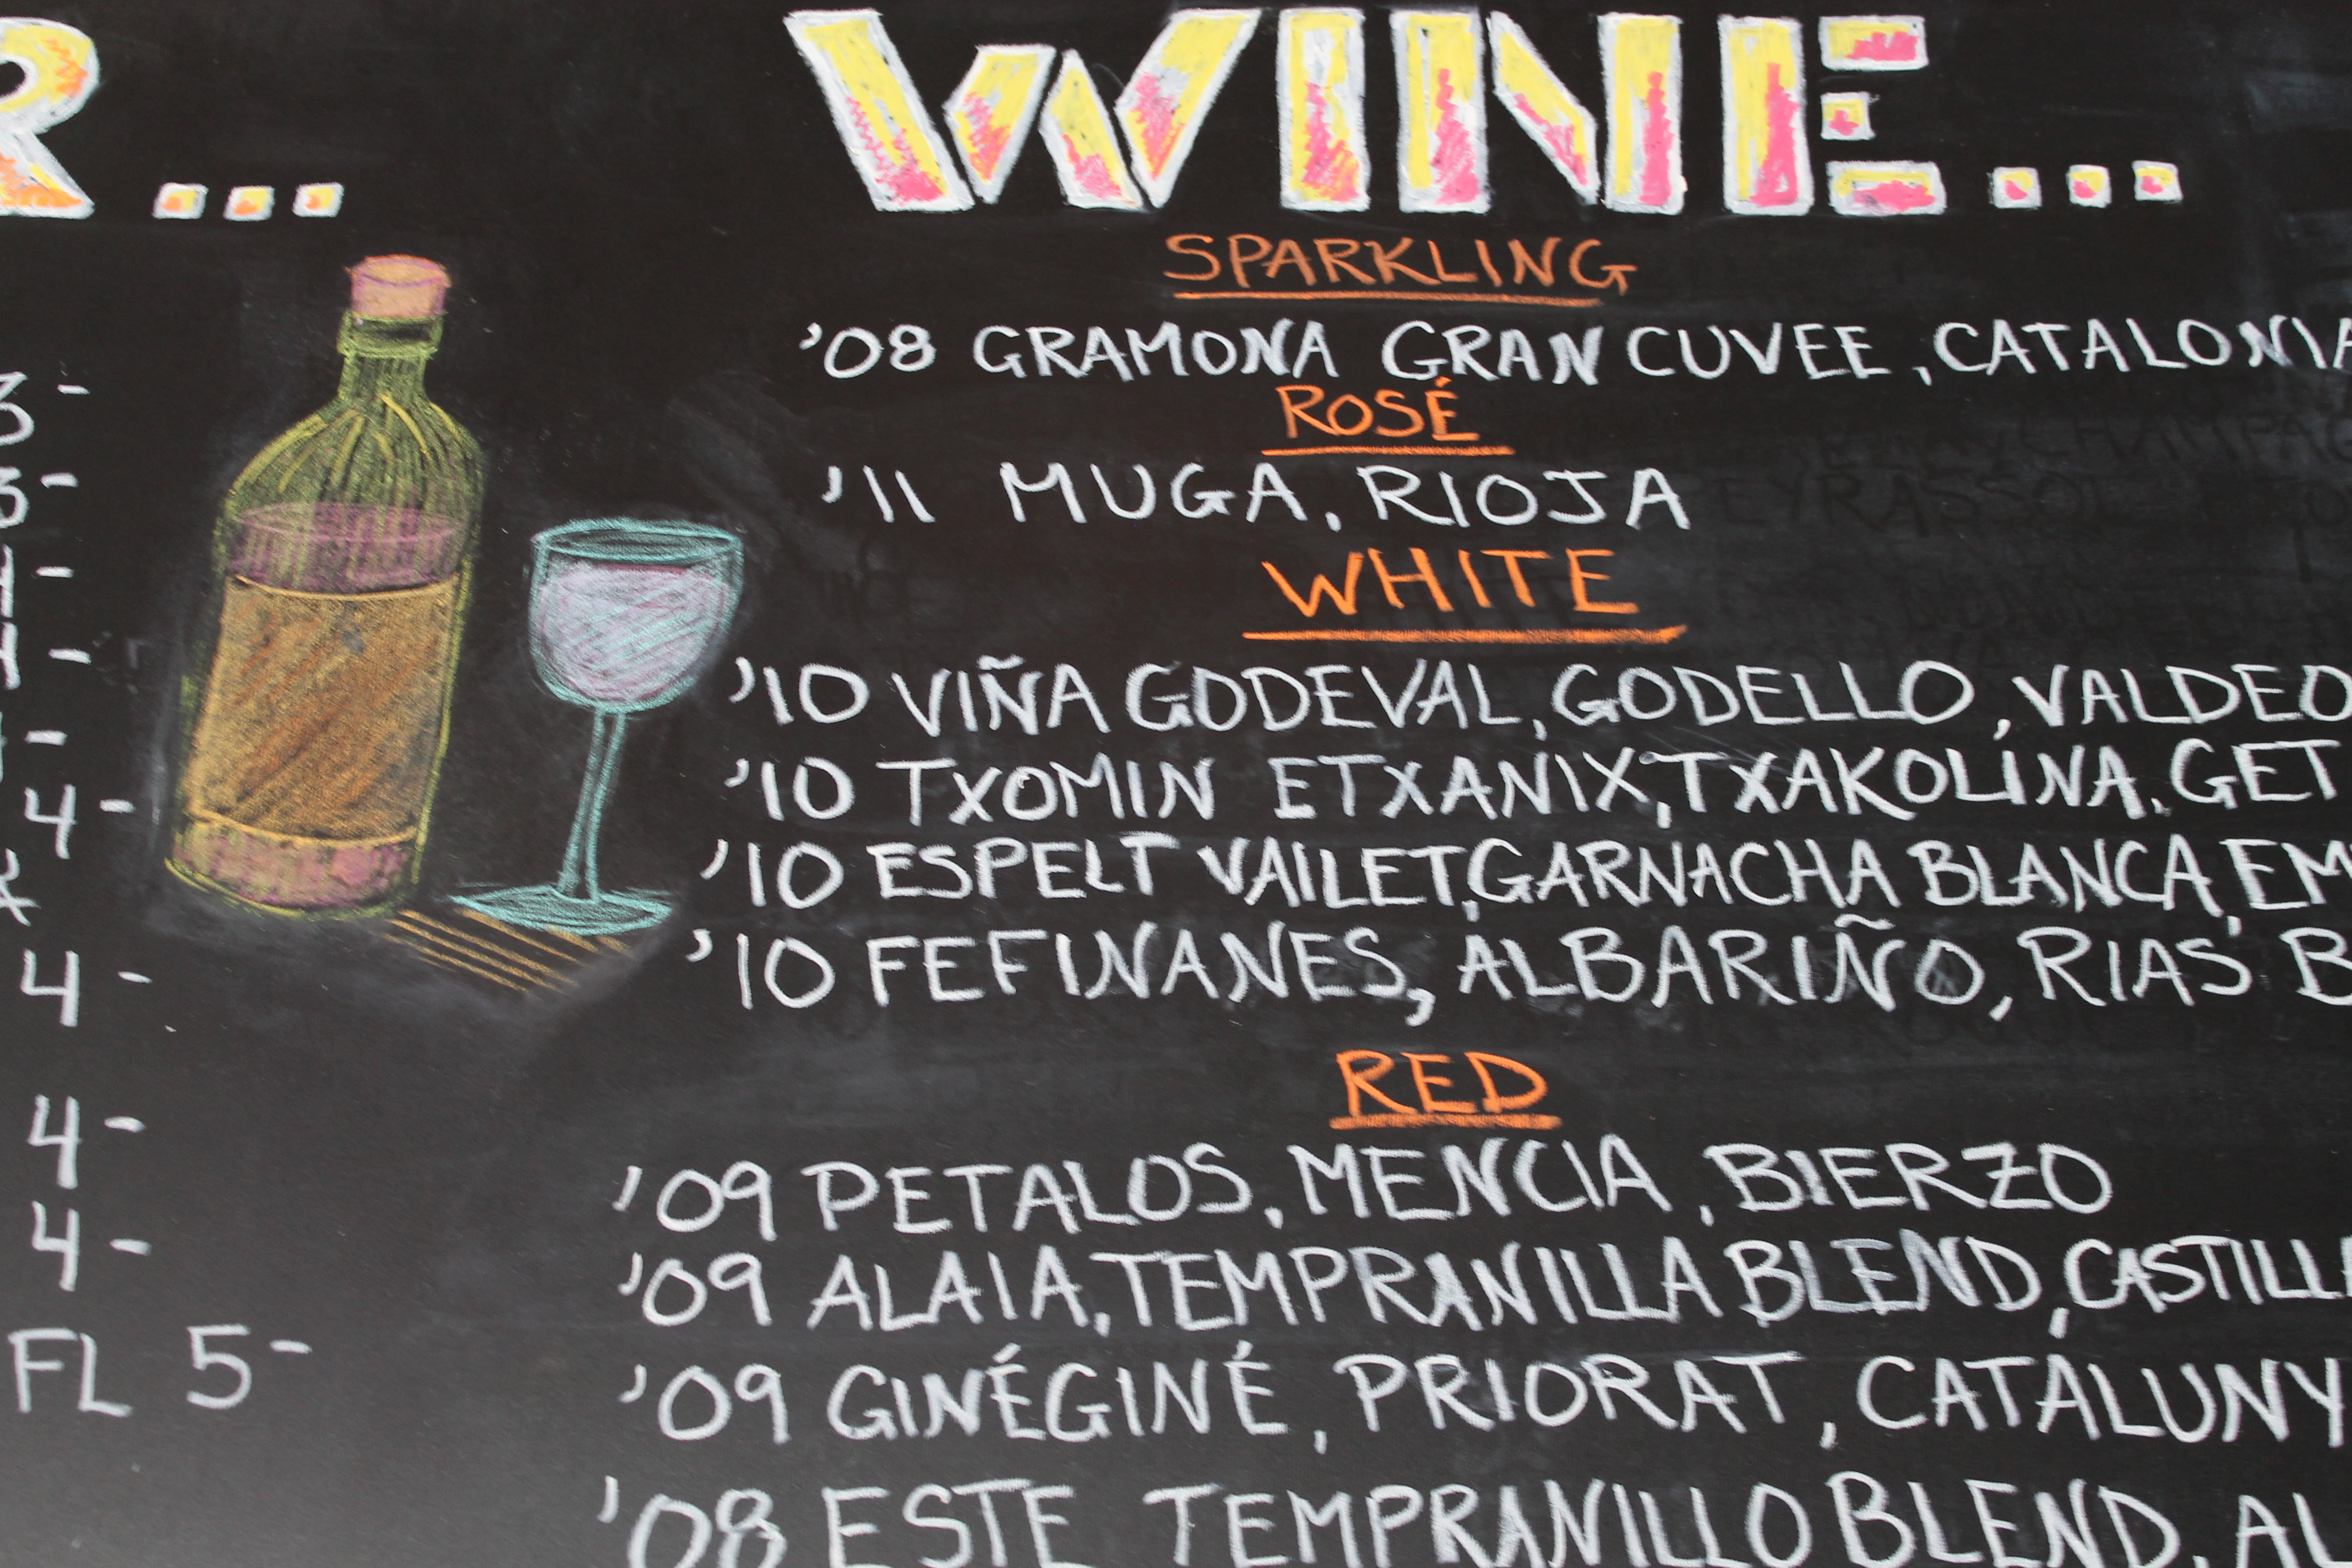 R...
3-
3-
4-
4-
4-
4-
4-
4-
FL 5-
WINE...
SPARKLING
'08 GRAMONA GRAN CUVEE, CATALONIA
ROSÉ
'11 MUGA, RIOJA
WHITE
'10 VIÑA GODEVAL, GODELLO, VALDEO
'10 TXOMIN ETXANIX, TXAKOLINA, GET
'10 ESPELT VAILET, GARNACHA BLANCA, EM
'10 FEFINANES, ALBARIÑO, RIAS B
RED
'09 PETALOS, MENCIA, BIERZO
'09 ALAIA, TEMPRANILLA BLEND, CASTILLA
'09 GINÉGINÉ, PRIORAT, CATALUNY
'08 ESTE TEMPRANILLO BLEND, AL